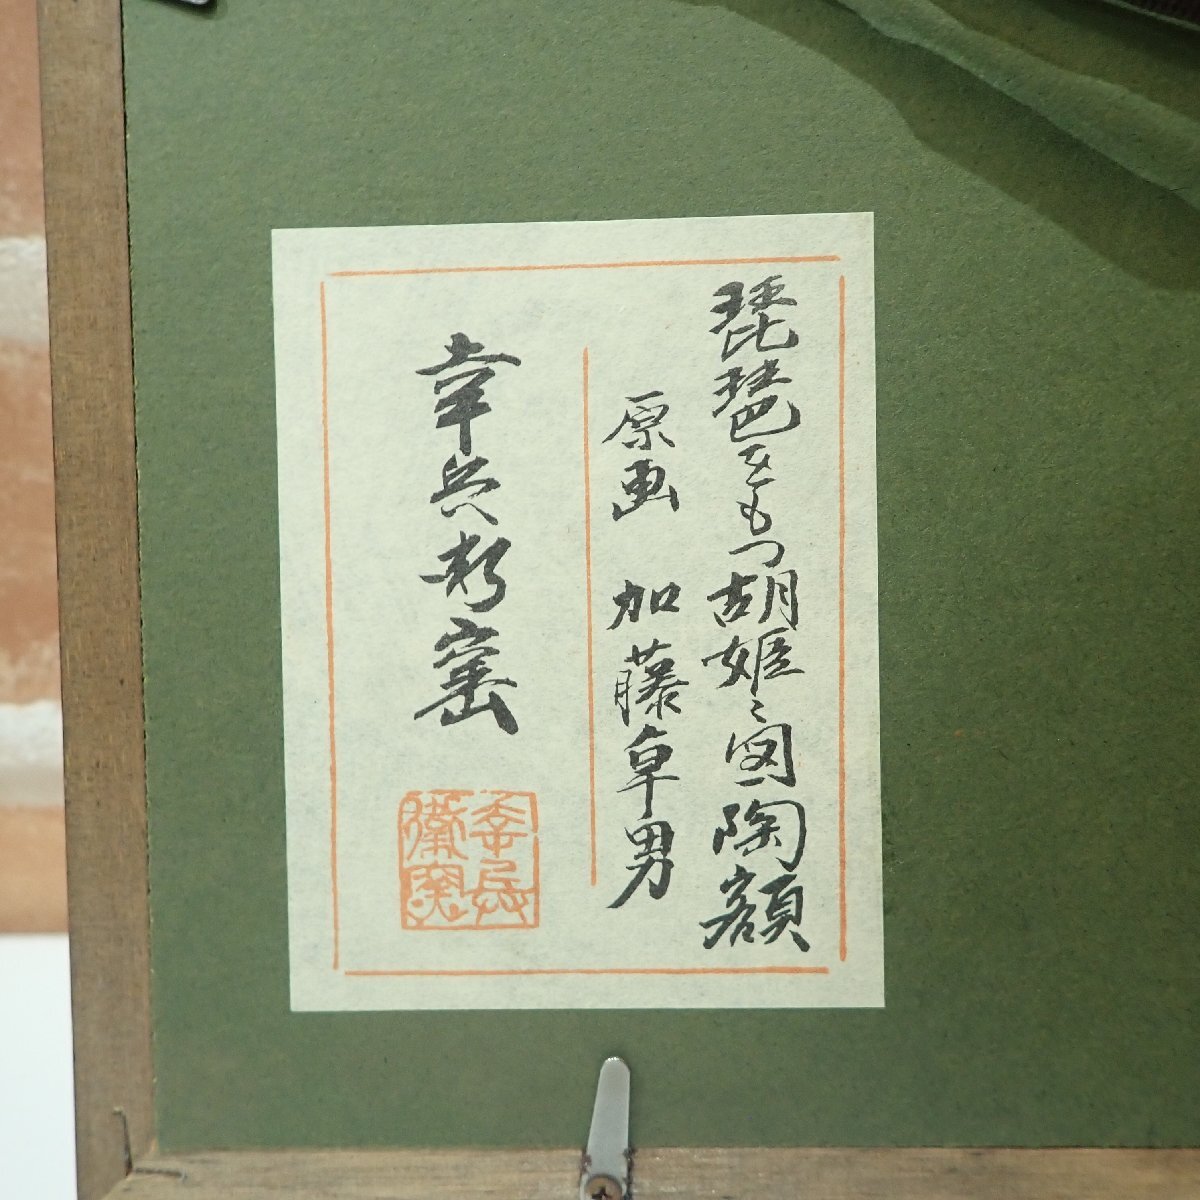 琵琶をもつ胡姫之図陶額
原画 加藤卓男
幸兵衛窯
幸兵衛窯